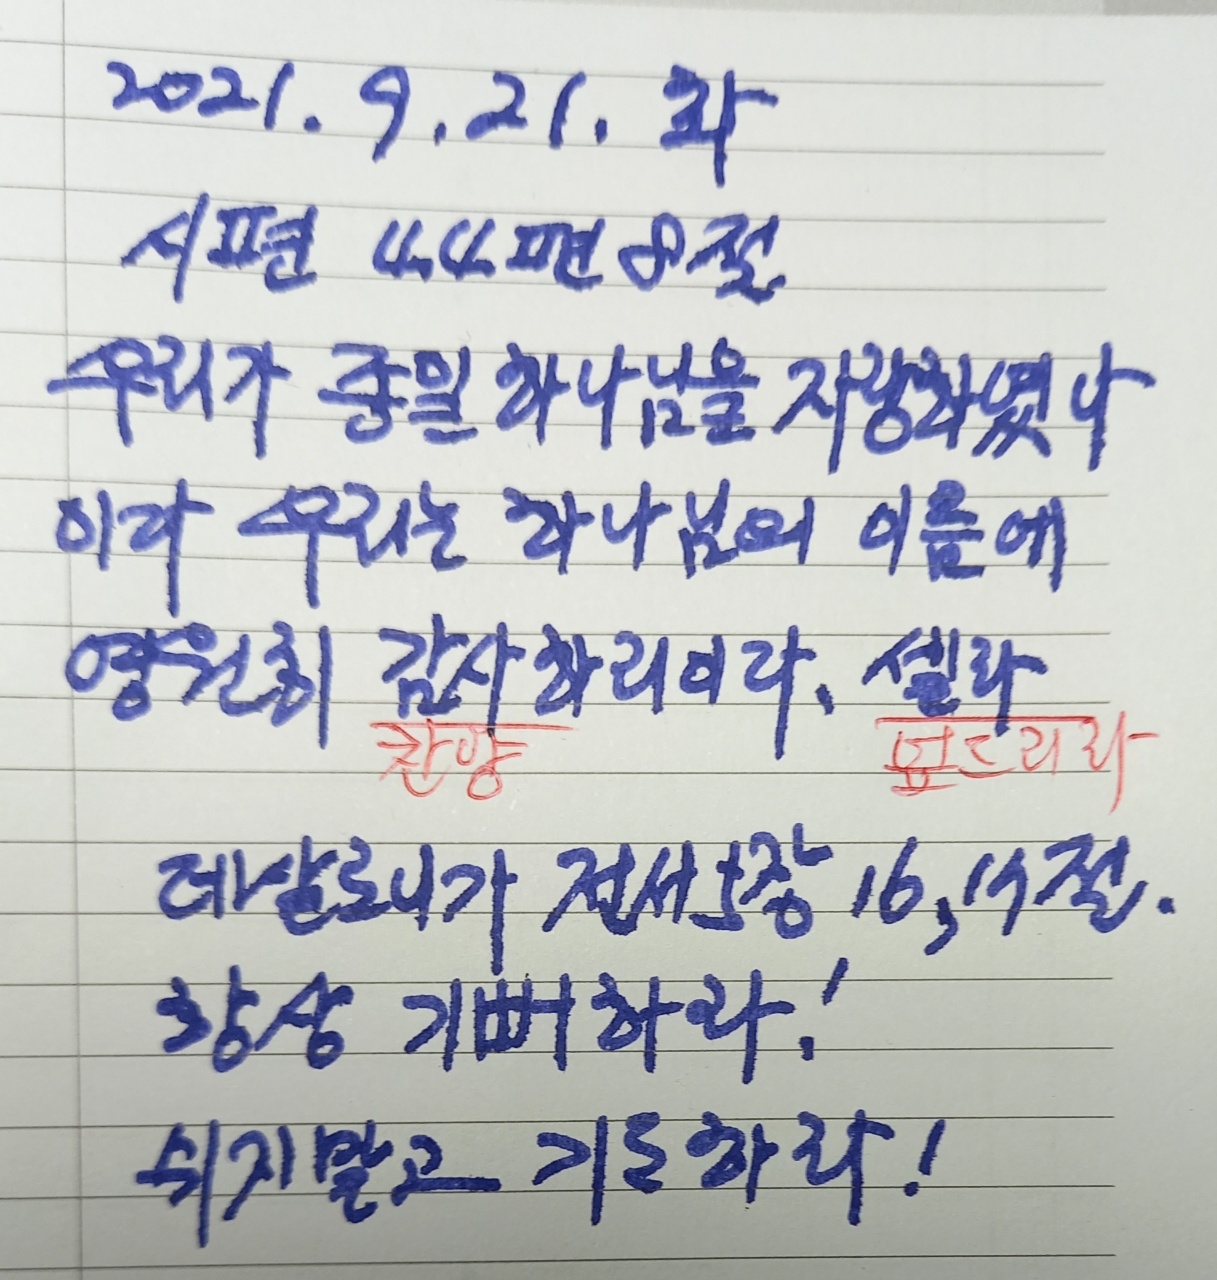 2021. 9. 21. 화
시편 44편 8절
우리가 종일 하나님을 자랑하였나
이다 우리는 하나님의 이름에
영원히 감사하리이다. 셀라
찬양 엎드리라
데살로니가 전서 5장 16, 17절.
항상 기뻐하라!
쉬지말고 기도하라!